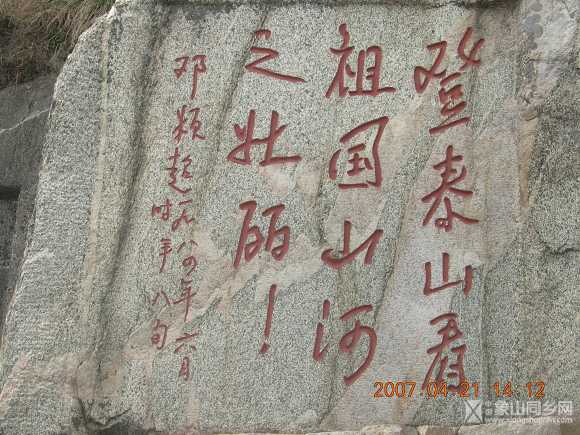 登泰山看
祖国山河
之壮丽！
邓颖超一九八四年六月
时年八旬
2007 04 21 14 12
象山同乡网